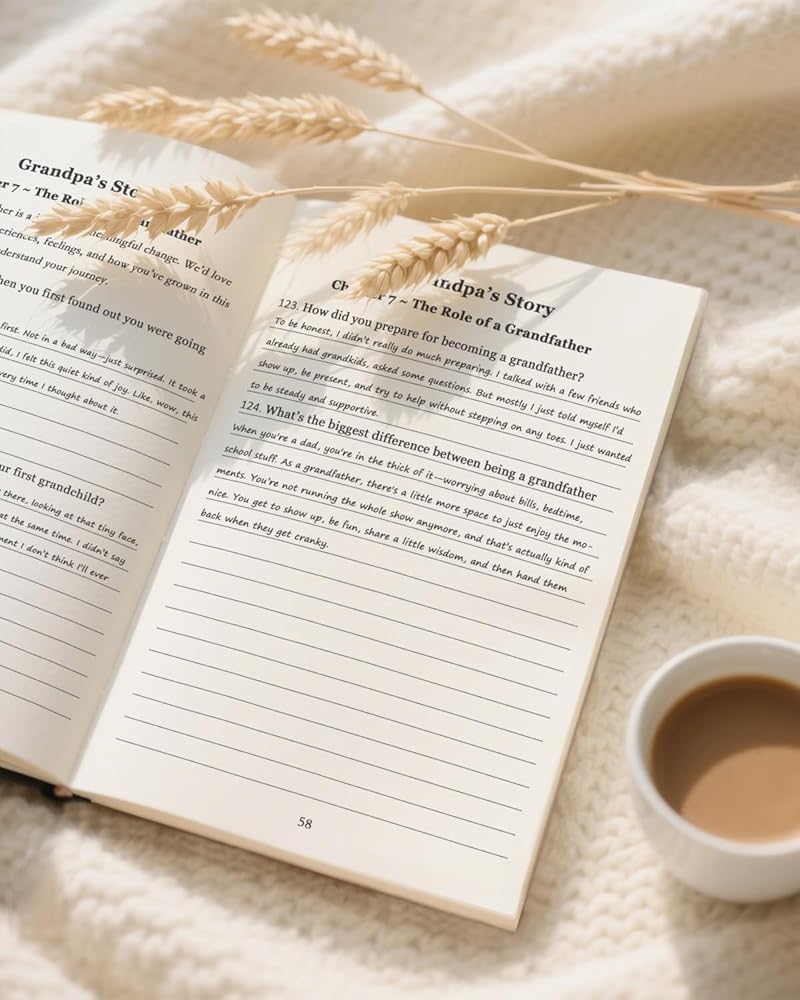 Grandpa's Sto
7 ~ The Rol
ather
is a
meaningful change. We'd love
feelings, and how you've grown in this
understand your journey.
when you first found out you were going
first. Not in a bad way—just surprised. It took a
did, I felt this quiet kind of joy. Like, wow, this
every time I thought about it.
first grandchild?
there, looking at that tiny face,
at the same time. I didn't say
I don't think I'll ever
ndpa's Story
Ch r 7 ~ The Role of a Grandfather
123. How did you prepare for becoming a grandfather?
To be honest, I didn't really do much preparing. I talked with a few friends who
already had grandkids, asked some questions. But mostly I just told myself I'd
show up, be present, and try to help without stepping on any toes. I just wanted
to be steady and supportive.
124. What's the biggest difference between being a grandfather
When you're a dad, you're in the thick of it—worrying about bills, bedtime,
school stuff. As a grandfather, there's a little more space to just enjoy the mo-
ments. You're not running the whole show anymore, and that's actually kind of
nice. You get to show up, be fun, share a little wisdom, and then hand them
back when they get cranky.
58